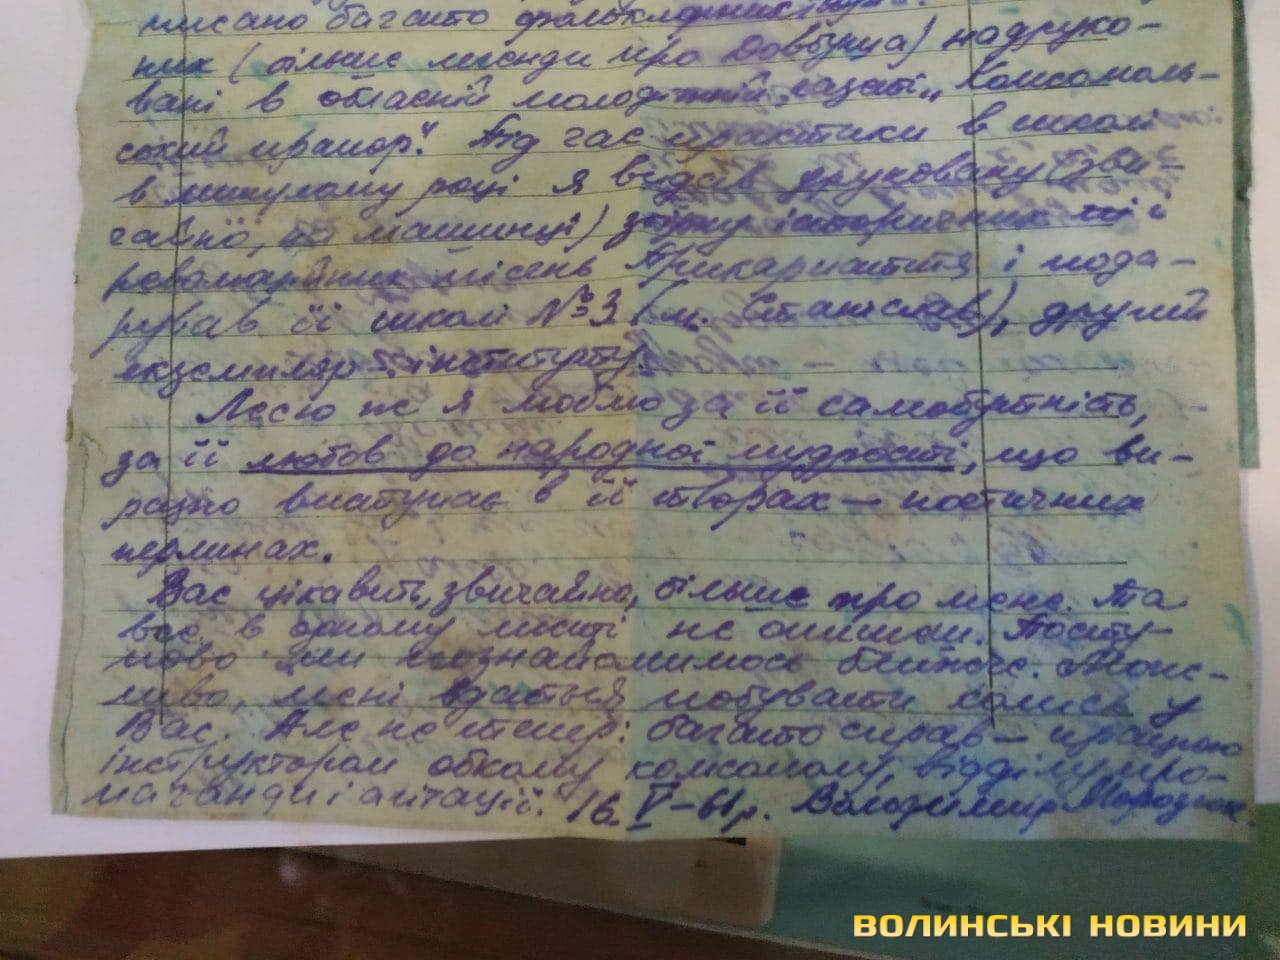 писано багато фольклорних
них (більше легенди про Довбуша) надруко-
вані в обласній молодіжній газеті „Комсомоль-
ський прапор". Під час практики в школі
в минулому році я видав друковану (зви-
чайно, на машинці) збірку історичних і
революційних пісень Прикарпаття і пода-
рував її школі №3 (м. Станіслав), другий
екземпляр – інституту.
Лесю ж я люблю за її самобутність,
за її любов до народної мудрості, що ви-
разно виступає в її творах – поетичних
перлинах.
Вас цікавить, звичайно, більше про мене. Та
все в одному листі не опишеш. Посту-
пово ми познайомимось ближче. Мож-
ливо, мені вдасться побувати колись у
Вас. Але не тепер: багато справ – працюю
інструктором обкому комсомолу, відділу про-
паганди і агітації. 16 V–61р. Володимир Морозюк.
ВОЛИНСЬКІ НОВИНИ